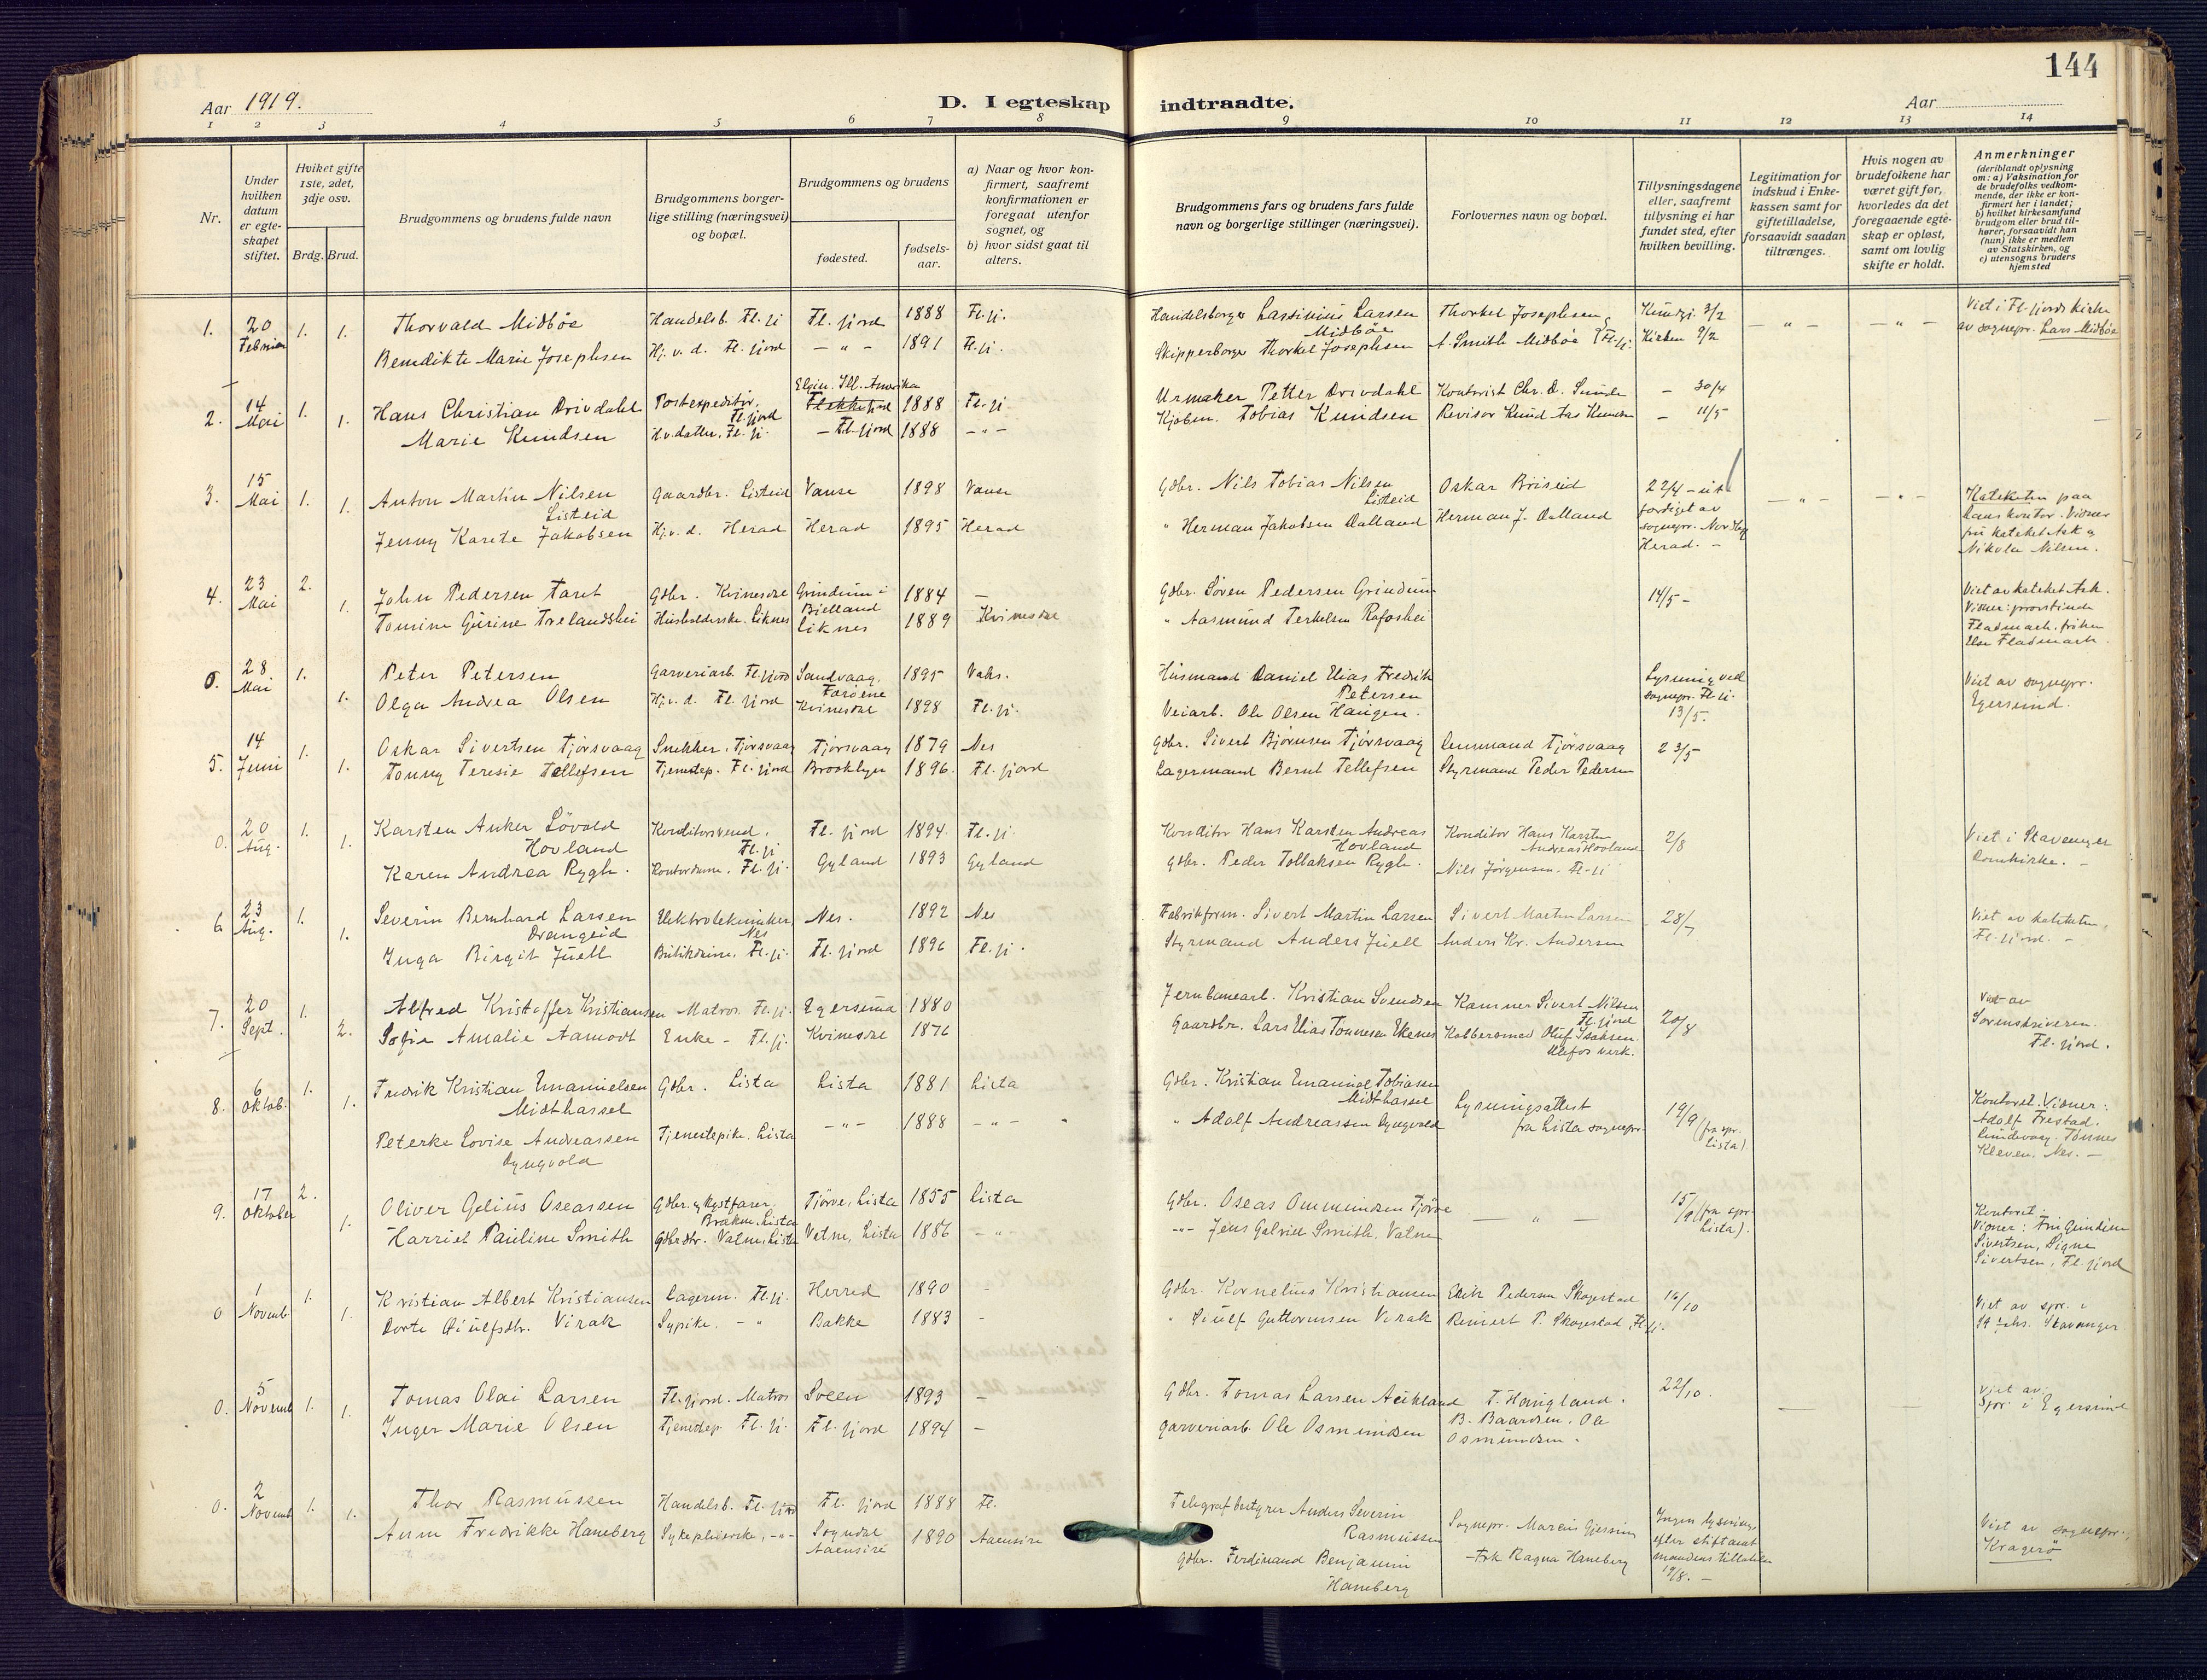 144
Aar 1919.
D. I egteskap indtraadte.
Aar
1 2 3 4 5 6 7 8 9 10 11 12 13 14
Nr.
Under hvilken datum er egte-skapet stiftet.
Hviket gifte 1ste, 2det, 3dje osv.
Brdg. Brud.
Brudgommens og brudens fulde navn
Brudgommens borger-lige stilling (næringsvei) og bopæl.
Brudgommens og brudens
fødested.
fødsels-aar.
a) Naar og hvor kon-firmert, saafremt konfirmationen er foregaat utenfor sognet, og
b) hvor sidst gaat til alters.
Brudgommens fars og brudens fars fulde navn og borgerlige stillinger (næringsvei).
Forlovernes navn og bopæl.
Tillysningsdagene eller, saafremt tillysning ei har fundet sted, efter hvilken bevilling.
Legitimation for indskud i Enke-kassen samt for giftetilladelse, forsaavidt saadan tiltrænges.
Hvis nogen av brudefolkene har været gift før, hvorledes da det foregaaende egte-skap er opløst, samt om lovlig skifte er holdt.
Anmerkninger
(deriblandt oplysning om: a) Vaksination for de brudefolks vedkom-mende, der ikke er kon-firmert her i landet; b) hvilket kirkesamfund brudgom eller brud til-hører, forsaavidt han (hun) ikke er medlem av Statskirken, og c) utensogns bruders hjemsted
1. 20 Februar 1. 1. Thorvald Midbøe Handelsb. Fl.fj Fl.fjord 1888 Fl.fj. Handelsborger Larsinius Larsen Midbøe Thorkel Josephsen Kundgj. 3/2 Viet i Fl.fjords kirke
Benedikte Marie Josephsen Hj.v.d. Fl.fjord – " – 1891 Fl.fj. Skipperborger Thorkel Josephsen A. Smith Midbøe Fl.fj. Kirken 9/2 av sognepr. Lars Midbøe
2. 14 Mai 1. 1. Hans Christian Drivdahl Postexpeditør, Fl.fjord Elgin. Ill. Amerika Flekkefjord 1888 Fl.fj Urmaker Petter Drivdahl Kontorist Chr. D. Sunde – 30/4
Marie Knudsen H.v.datter. Fl.fj. – Fl.fjord 1888 – " – Kjøbm. Tobias Knudsen Revisor Knud Aas Knudsen – 11/5
3. 15 Mai 1. 1. Anton Martin Nilsen Listeid Gaardbr. Listeid Vanse 1898 Vanse Gdbr. Nils Tobias Nilsen Listeid Oskar Briseid 22/4 – ut-
Jenny Karete Jakobsen Hj.v.d. Herad Herad 1895 Herad " Herman Jakobsen Dalland Herman J. Dalland fordiget av sognepr. Herad. –
Kateketen paa hans kontor. Vidner fru kateket Ask og Nikola Nilsen.
4. 23 Mai 2. 1. John Pedersen Faret Gdbr. Kvinesdal Grindum i Bjelland 1884 – Gdbr. Søren Pedersen Grindum 14/5 –
Tomine Gurine Trelandshei Husholderske. Liknes Liknes 1889 Kvinesdal " Aasmund Terkelsen Rafoshei
Viet av kateket Ask. Vidner: provstinde Fladmark, frøken Elsa Fladmark.
0. 28 Mai 1. 1. Peter Petersen Garveriarb. Fl.fjord Sandvaag, Færøene 1895 Vaks. Husmand Daniel Elias Fredrik Petersen Lysning ved sognepr. Fl.fj. 13/5. Viet av sognepr.
Olga Andrea Olsen Hj.v.d. Fl.fjord Kvinesdal 1898 Fl.fj. Veiarb. Ole Olsen Haugen. Egersund.
5. 14 Juni 1. 1. Oskar Sivertsen Tjørsvaag Snekker. Tjørsvaag Tjørsvaag 1879 Nes Gdbr. Sivert Bjørnsen Tjørsvaag Tjørsvaag 23/5
Tonny Teresie Tellefsen Tjenestep. Fl.fjord Brooklyn 1896. Fl.fjord Lagermand Bernt Tellefsen Styrmand Peder Pedersen
0. 20 Aug. 1. 1. Karsten Anker Løvold Hovland Konditorsvend. Fl.fj Fl.fjord 1894 Fl.fj. Konditor Hans Karsten Andreas Hovland Konditor Hans Karsten Andreas Hovland 2/8 Viet i Stavanger
Karen Andrea Rygh. Kontordame. Fl.fj. Gyland 1893 Gyland Gdbr. Peder Tollaksen Rygh. Nils Jørgensen. Fl.fj Domkirke. –
6. 23 Aug. 1. 1. Severin Bernhard Larsen Drangeid Elektrotekniker, Nes Nes. 1892 Nes Fabrikform. Sivert Martin Larsen Sivert Martin Larsen 28/7 Viet av kateketen,
Inga Birgit Juell Butikdame. Fl.fj. Fl.fjord 1896 Fl.fj. Styrmand Anders Juell Anders Kr. Andersen Fl.fjord. –
7. 20 Sept. 1. 2. Alfred Kristoffer Kristiansen Matros. Fl.fj. Egersund 1880 Jernbanearb. Kristian Svendsen Sivert Nilsen Fl.fjord 20/8 Viet av
Sofie Amalie Aamodt Enke – Fl.fj. Kvinesdal 1876 Gaardbr. Lars Elias Tonnesen Ekenes Oluf Isaksen. Ulefos verk. Sorenskriveren. Fl.fjord.
8. 6 Oktob. 1. 1. Fredrik Kristian Emanuelsen Midthassel Gdbr. Lista Lista 1881 Lista Gdbr. Kristian Emanuel Tobiasen Midthassel Lysningsattest fra Lista sognepr. 19/9 (fra spr. Lista)
Peterke Lovise Andreassen Dyngvold Tjenestepike. Lista – " – 1888 – " – " Adolf Andreassen Dyngvold
Kontoret. Vidner: Adolf Frestad. Lundevaag. Tønnes Kleven. Nes. –
9. 17 Oktober 2. 1. Oliver Gelius Oseassen Gdbr. og kystfarer. Brekne. Lista Tjørve, Lista 1855 Lista Gdbr. Oseas Ommundsen Tjørve – " – 15/9 (fra spr. Lista).
Harriet Pauline Smith Gdbrdtr. Vatne. Lista Vatne, Lista 1886 – " – – " – Jens Gabriel Smith. Vatne
Kontoret. Vidner: Sivertsen, Signe Sivertsen, Fl.fjord
0 1 Novemb. 1. 1. Kristian Albert Kristiansen Lagerm. Fl.fj. Herred 1890 - Gdbr. Kornelius Kristiansen Eilik Pedersen Skogestad 16/10 Viet av spr. i
Dorte Siulfsdtr. Virak Sypike. – " Bakke 1883 - " Siulf Guttormsen Virak Reinert P. Skogestad Fl.fj. Stavanger
0. 5 Novemb 1. 1. Tomas Olai Larsen Fl.fjord. Matros Soeen 1893 – Gdbr. Tomas Larsen Aukland T. Haugland. 22/10. Viet av
Inger Marie Olsen Tjenestep. Fl.fj. Fl.fjord 1894 – Garveriarb. Ole Osmundsen B. Baardsen. Ole Osmundsen. Spr. i Egersund
0. 2 Novemb 1. 1. Thor Rasmussen Handelsb. Fl.fjord Fl.fjord 1888 Fl. Telegrafbestyrer Anders Severin Rasmussen Sognepr. Marcus Gjessing Ingen lysning, efter stiftamt-mandens tilladelse 19/8. –
Anne Fredrikke Haneberg Sykepleierske, – " – Sogndal Aaensire 1890 Aaensire Gdbr. Ferdinand Benjamin Haneberg – Frk Ragna Haneberg
Viet av sognepr., Kragerø